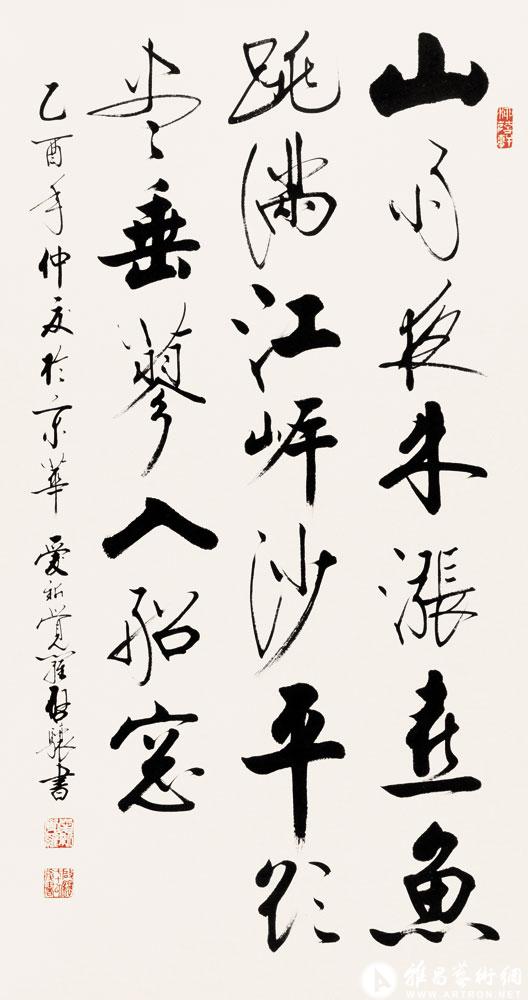 山雨夜来漲喜魚
跳滿江岸沙平欲
尽垂蓼入船窓
乙酉年仲夏於京華 愛新覚羅啟驤書
雅昌藝術網
WWW.ARTRON.NET